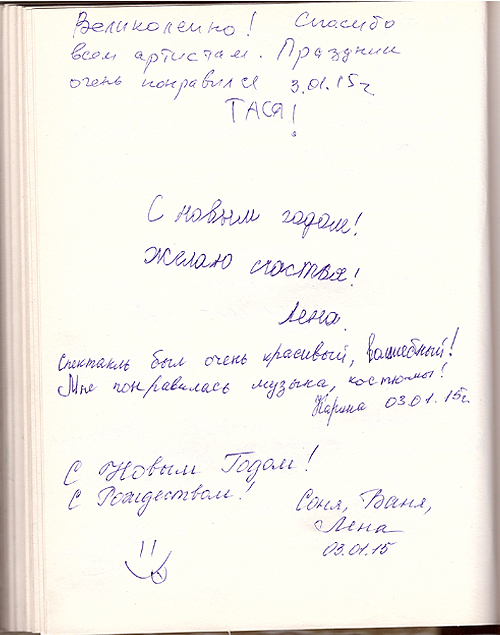 Великолепно! Спасибо
всем артистам. Праздник
очень понравился 3.01.15г
ТАСЯ!
С новым годом!
Желаю счастья!
Лена.
Спектакль был очень красивый, волшебный!
Мне понравилась музыка, костюмы!
Карина 03.01.15г.
С Новым Годом!
С Рождеством!
Соня, Ваня,
Лена
03.01.15